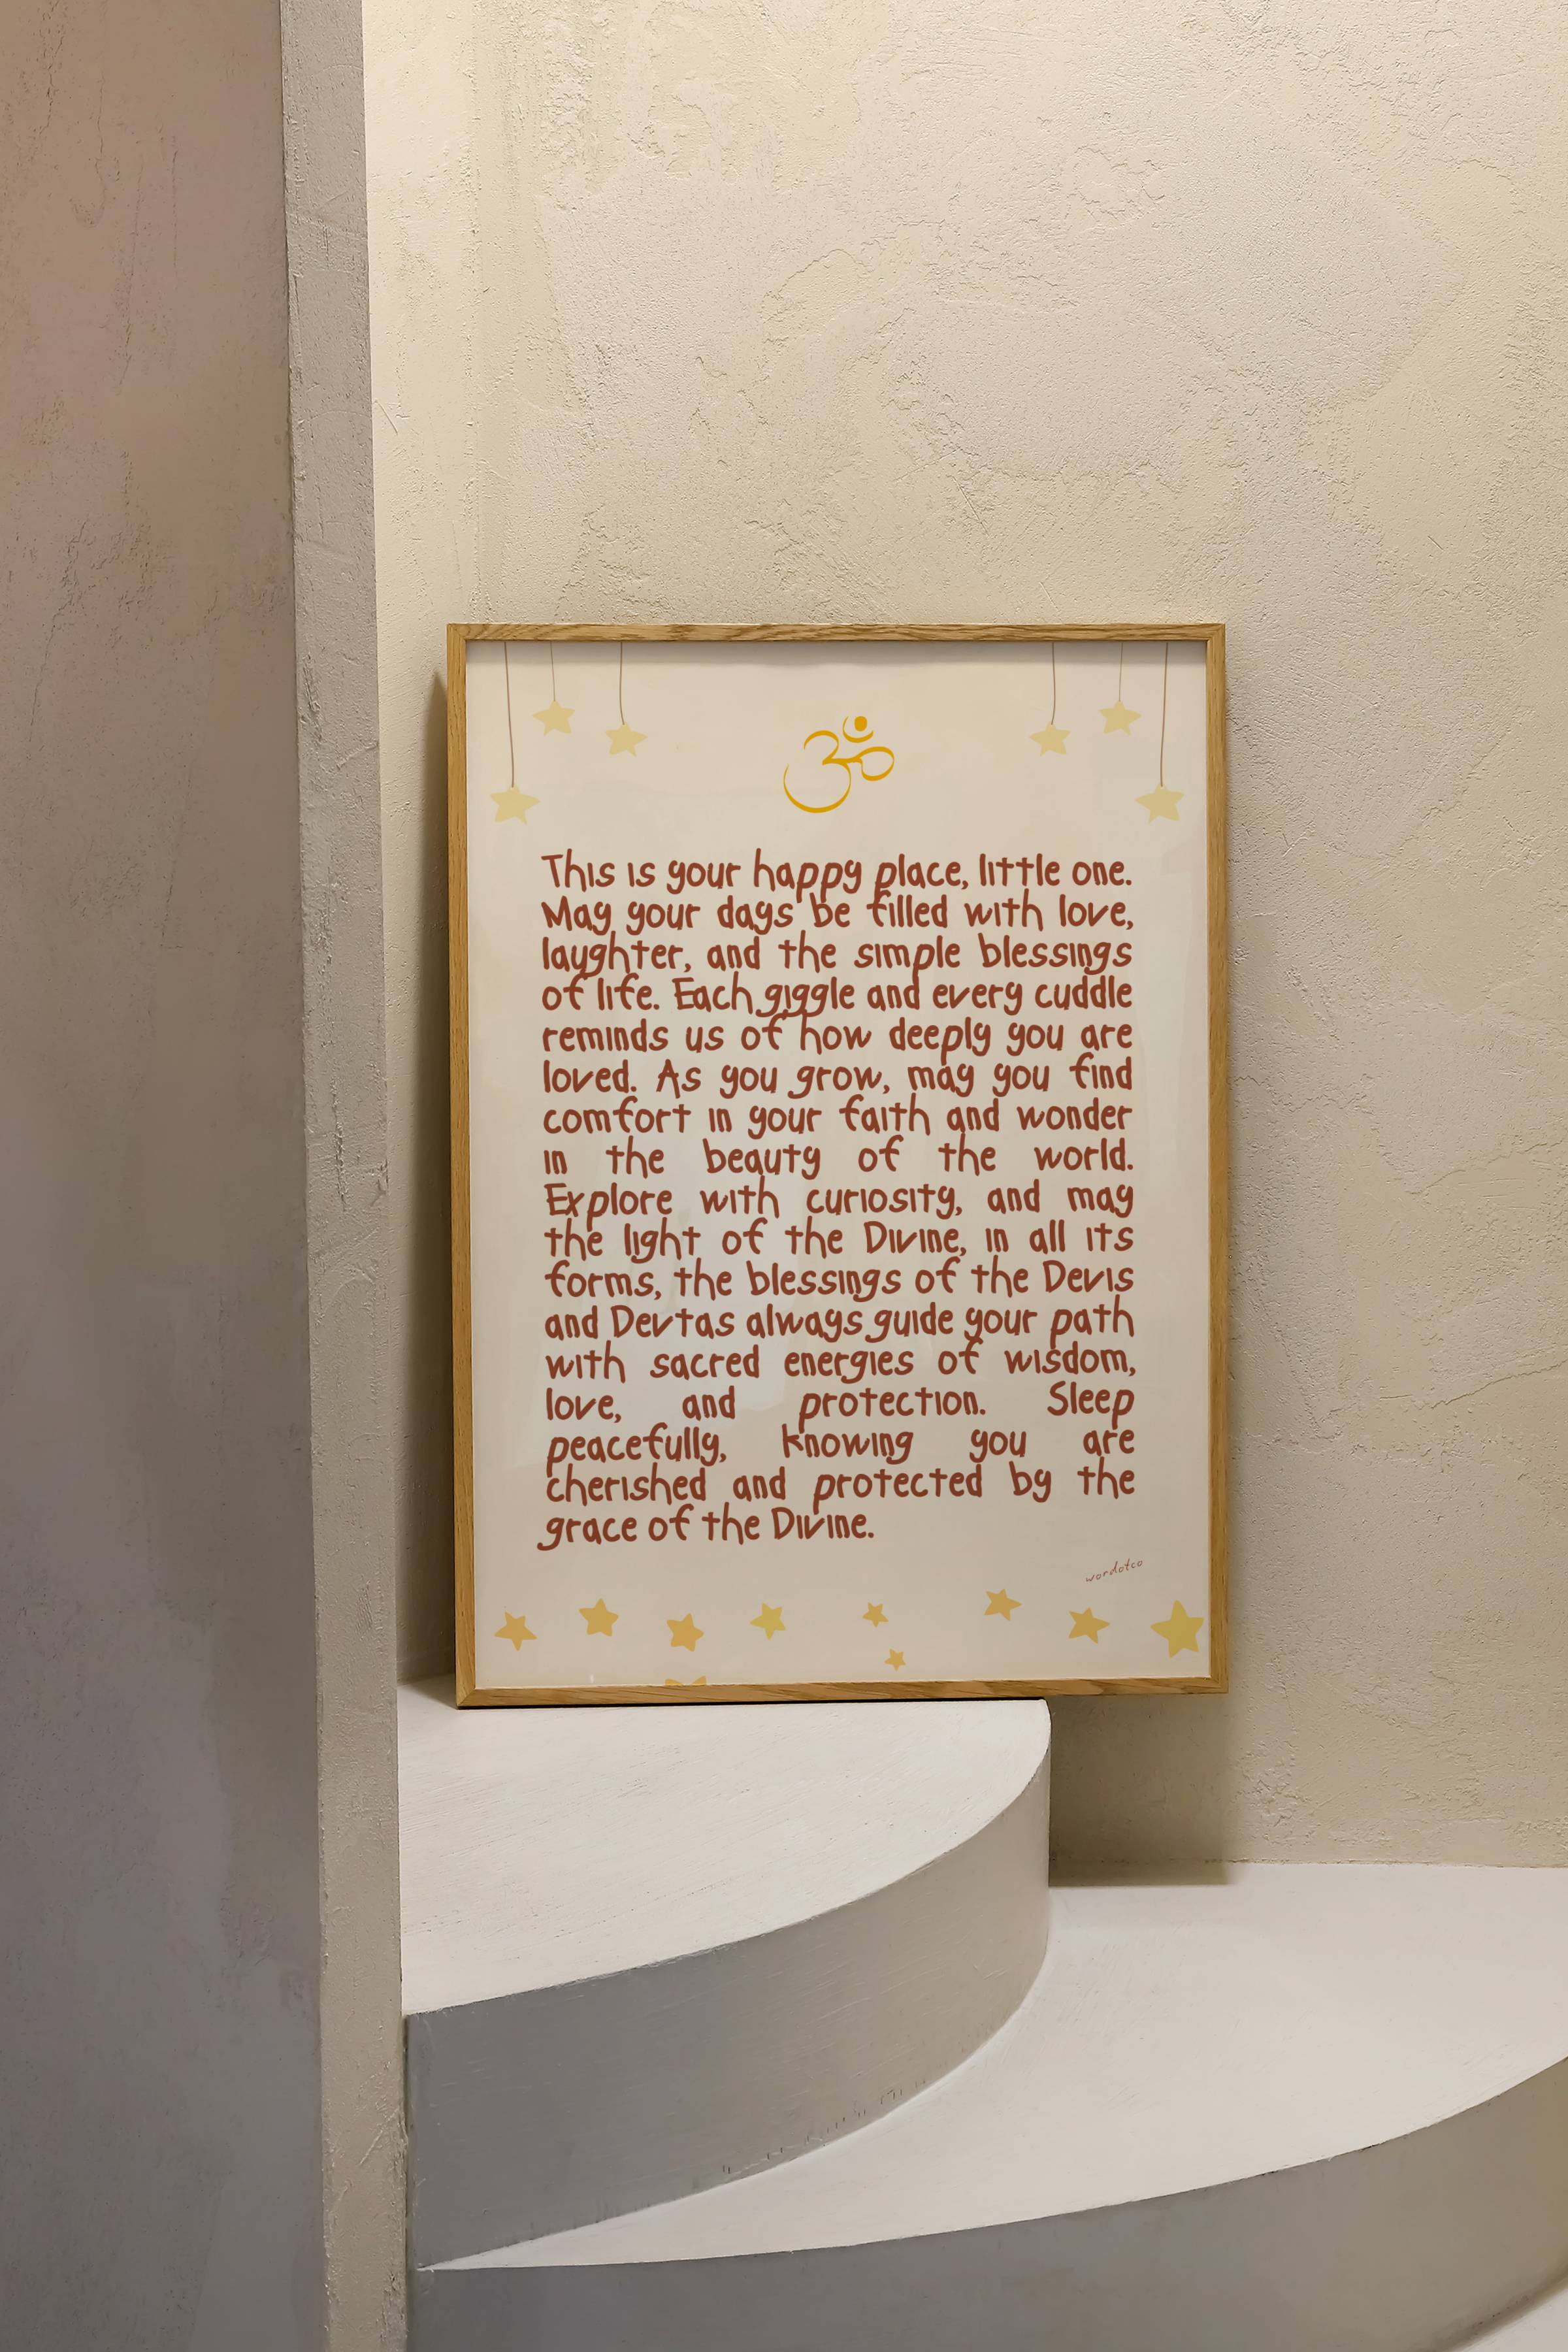 ॐ
This is your happy place, little one.
May your days be filled with love,
laughter, and the simple blessings
of life. Each giggle and every cuddle
reminds us of how deeply you are
loved. As you grow, may you find
comfort in your faith and wonder
in the beauty of the world.
Explore with curiosity, and may
the light of the Divine, in all its
forms, the blessings of the Devis
and Devtas always guide your path
with sacred energies of wisdom,
love, and protection. Sleep
peacefully, knowing you are
cherished and protected by the
grace of the Divine.
wordotco